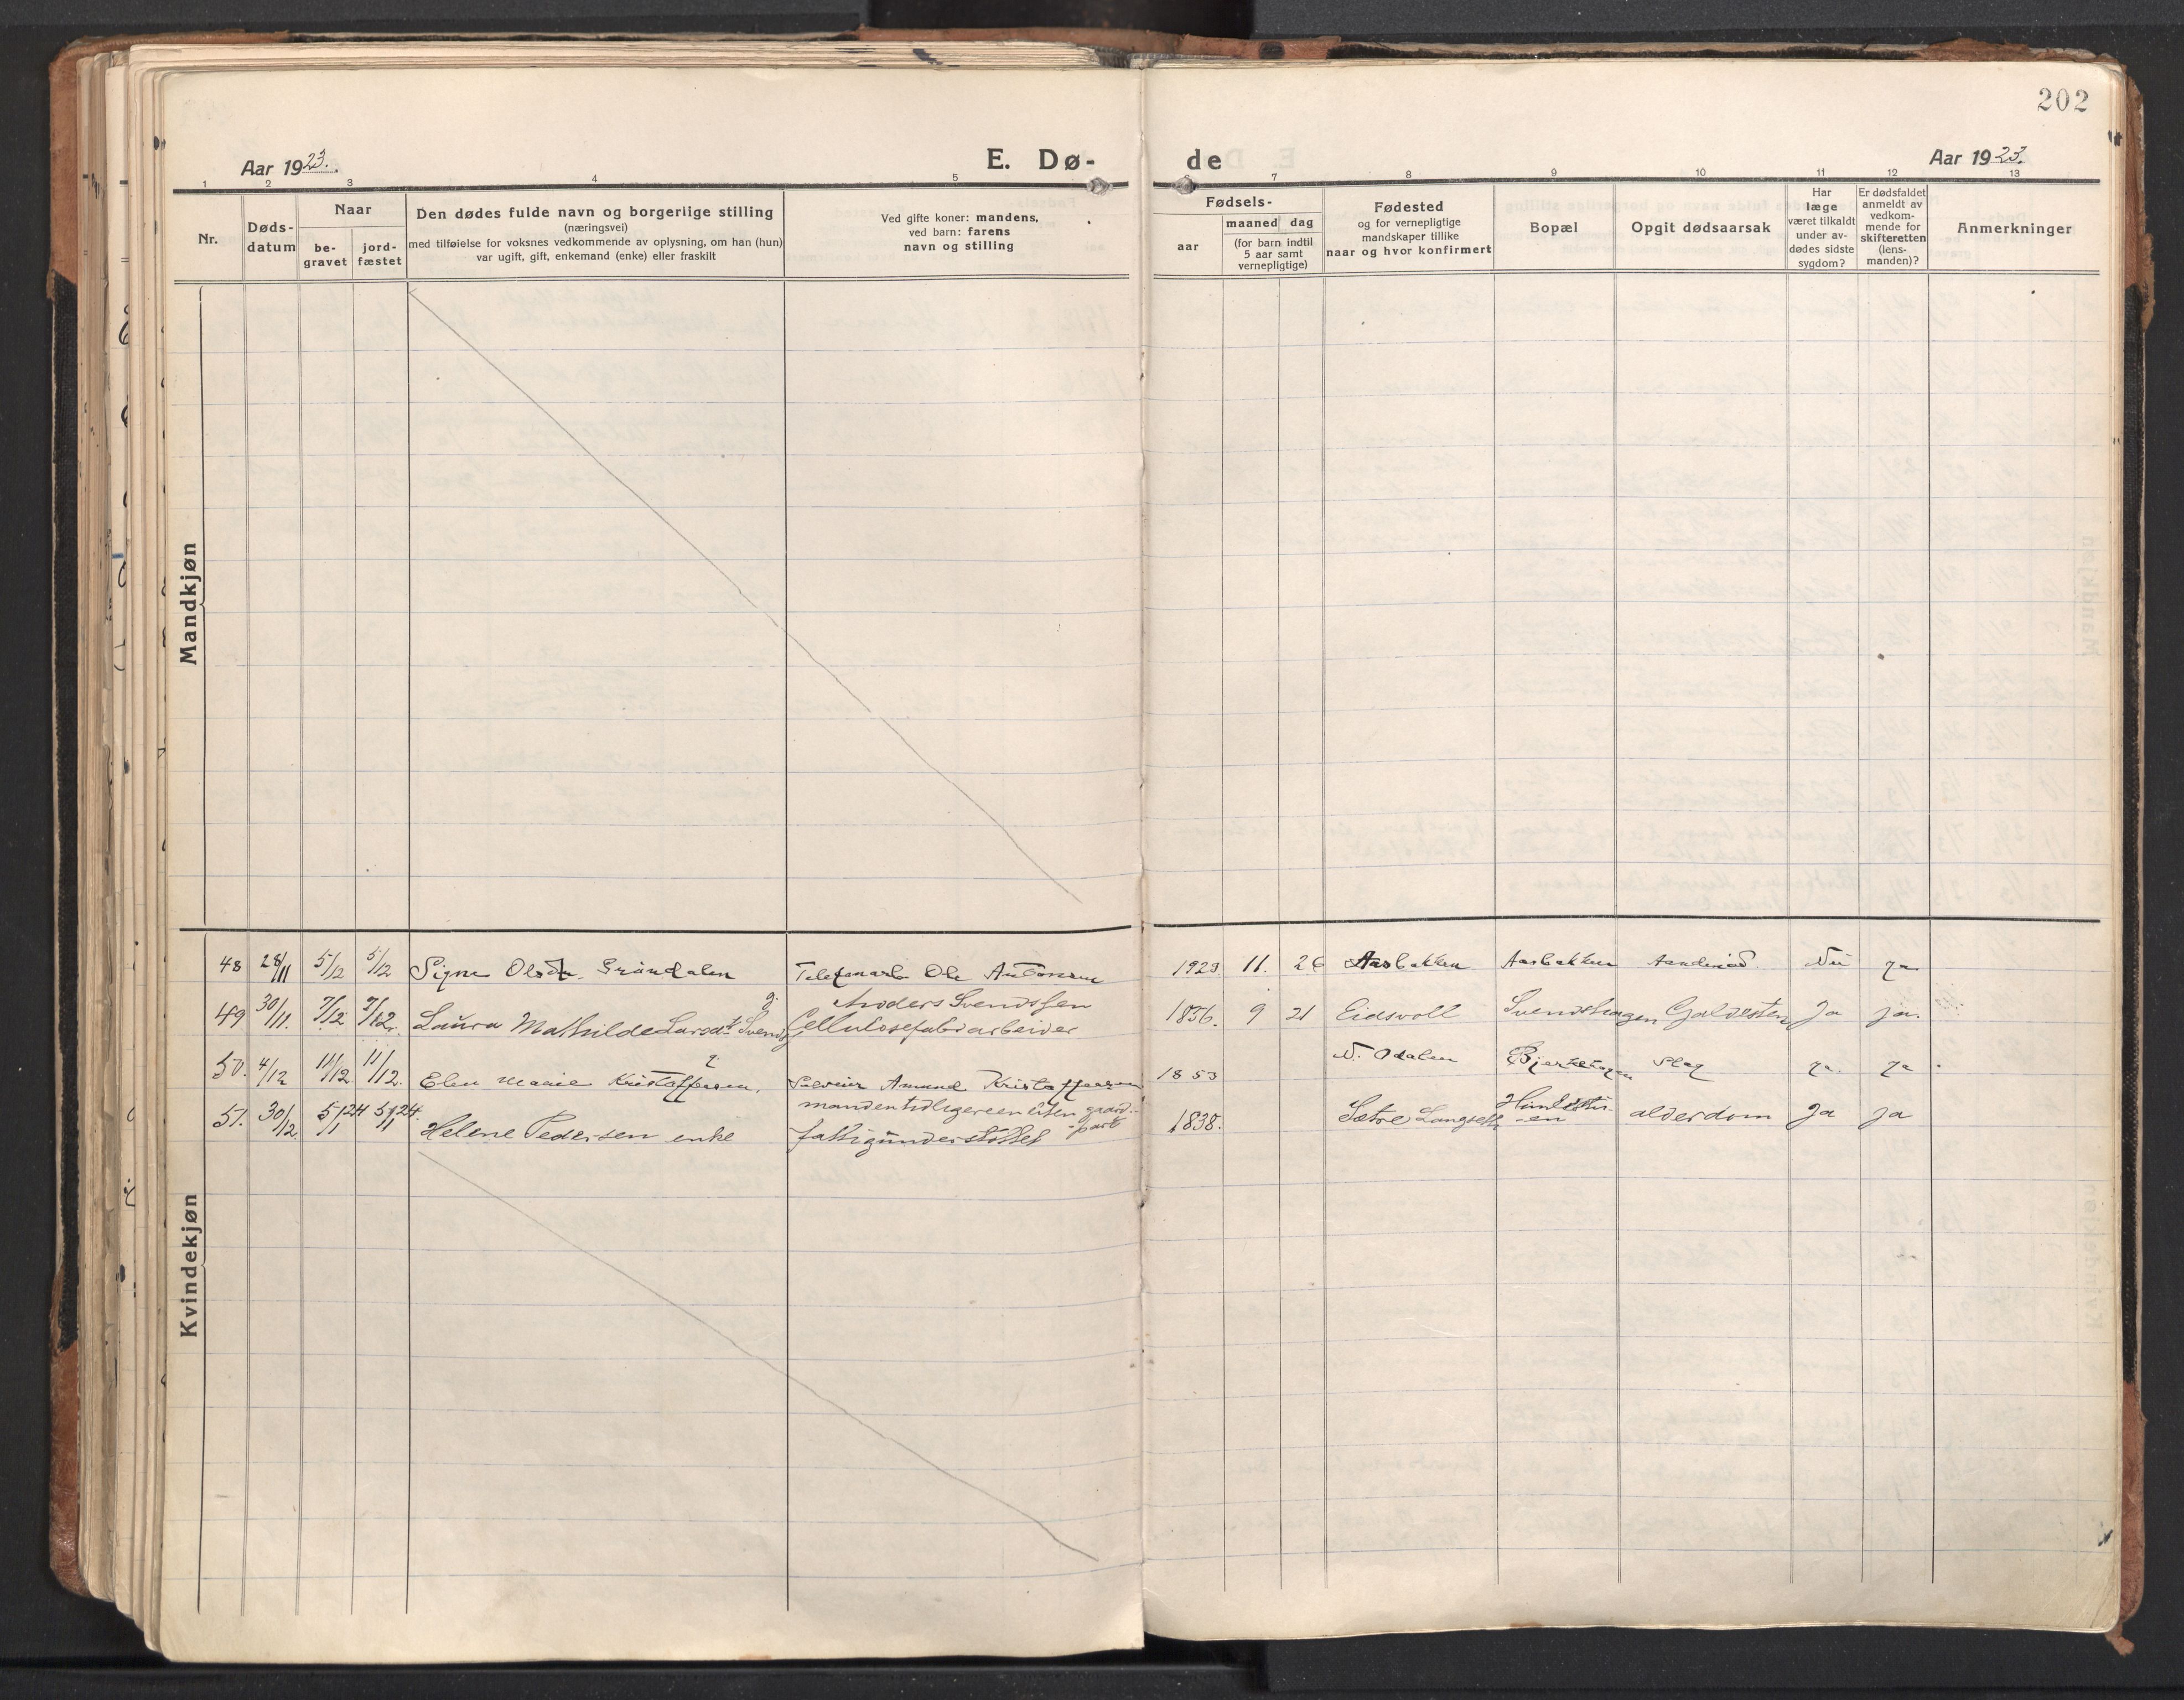 202
Aar 1923.
E. Dø-
de
Aar 1923.
1 2 3 4 5 7 8 9 10 11 12 13
Nr.
Døds-
datum
Naar
be-
gravet
jord-
fæstet
Den dødes fulde navn og borgerlige stilling
(næringsvei)
med tilføielse for voksnes vedkommende av oplysning, om han (hun)
var ugift, gift, enkemand (enke) eller fraskilt
Ved gifte koner: mandens,
ved barn: farens
navn og stilling
Fødsels-
aar
maaned dag
(for barn indtil
5 aar samt
vernepligtige)
Fødested
og for vernepligtige
mandskaper tillike
naar og hvor konfirmert
Bopæl
Opgit dødsaarsak
Har
læge
været tilkaldt
under av-
dødes sidste
sygdom?
Er dødsfaldet
anmeldt av
vedkom-
mende for
skifteretten
(lens-
manden)?
Anmerkninger
Mandkjøn
Kvindekjøn
48 28/11 5/12 5/12 Signe Olsdtr. Gründalen Telefonarb. Ole 1923 11. 26 Aasbakken Aasbakken Aandenød. Nei ja
g. Anders Svendssen
49 30/11. 7/12 7/12. Laura Mathilde Larsdt Svends Cellulosefabarbeider 1856. 9 21 Eidsvoll Svendshagen Galdesten Ja ja.
50. 4/12 11/12. 11/12. Elen Marie Kristoffersen, Selveier Amund Kristoffersen 1853 N. Odalen Bjerkehagen Slag ja. ja
manden tidligere en liten gaard-
part
51. 30/12. 5/1 24 5/1 24. Helene Pedersen enke fattigunderstøttet 1838. Sætre Langseth -en alderdom Ja Ja